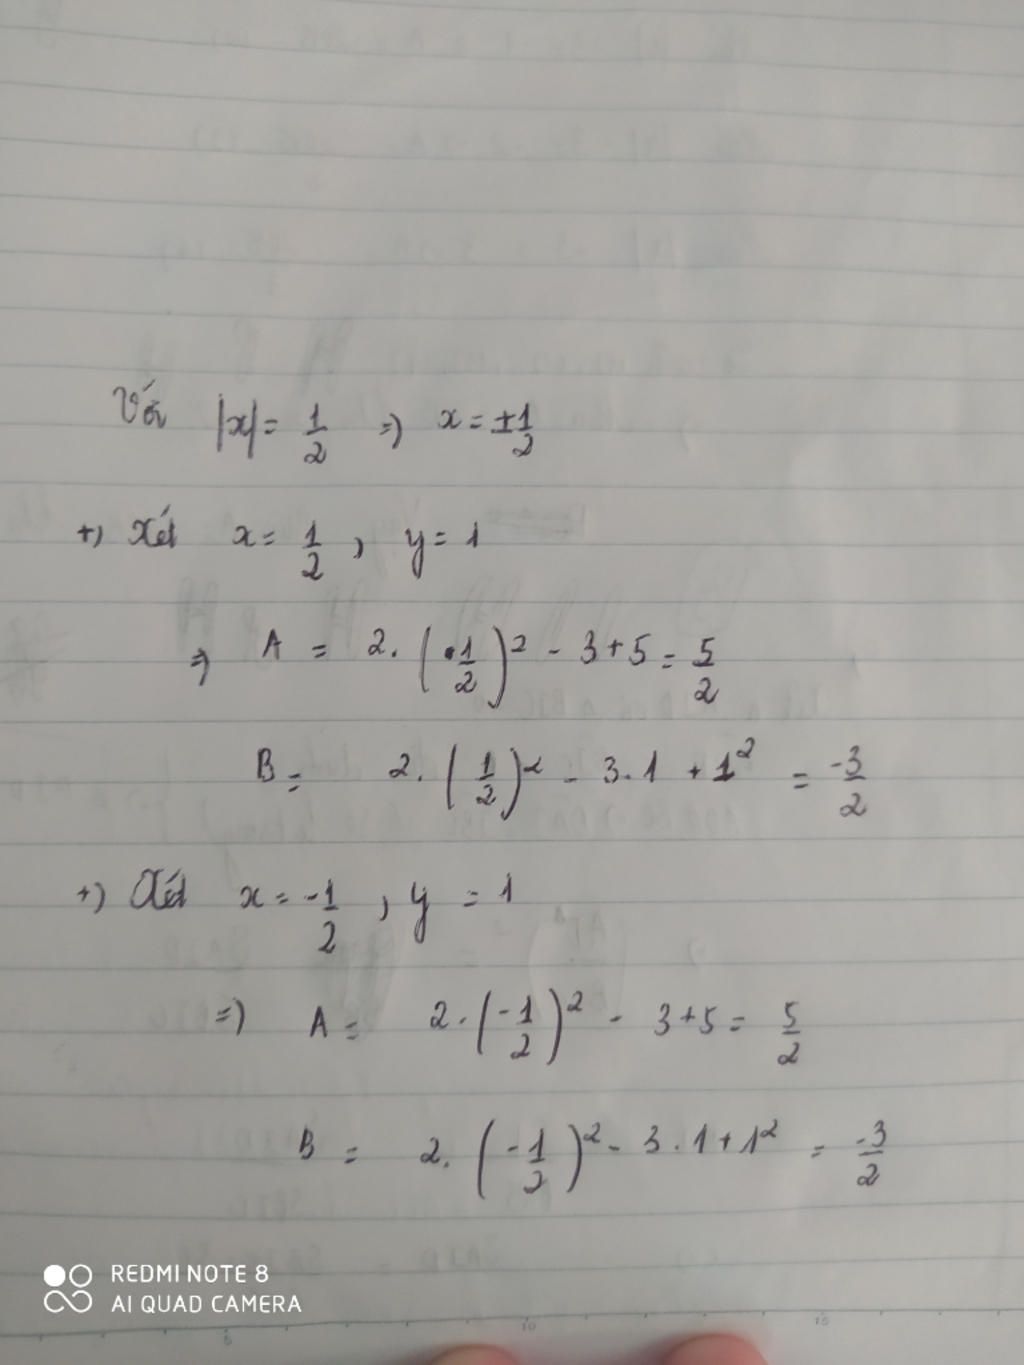 Với |x| = 1/2 => x = ±1/2
+) Xét x = 1/2 , y = 1
=> A = 2. (1/2)² - 3 + 5 = 5/2
B = 2. (1/2)² - 3.1 + 1² = -3/2
+) Xét x = -1/2 , y = 1
=> A = 2. (-1/2)² - 3 + 5 = 5/2
B = 2. (-1/2)² - 3.1 + 1² = -3/2
REDMI NOTE 8
AI QUAD CAMERA
5 10 15